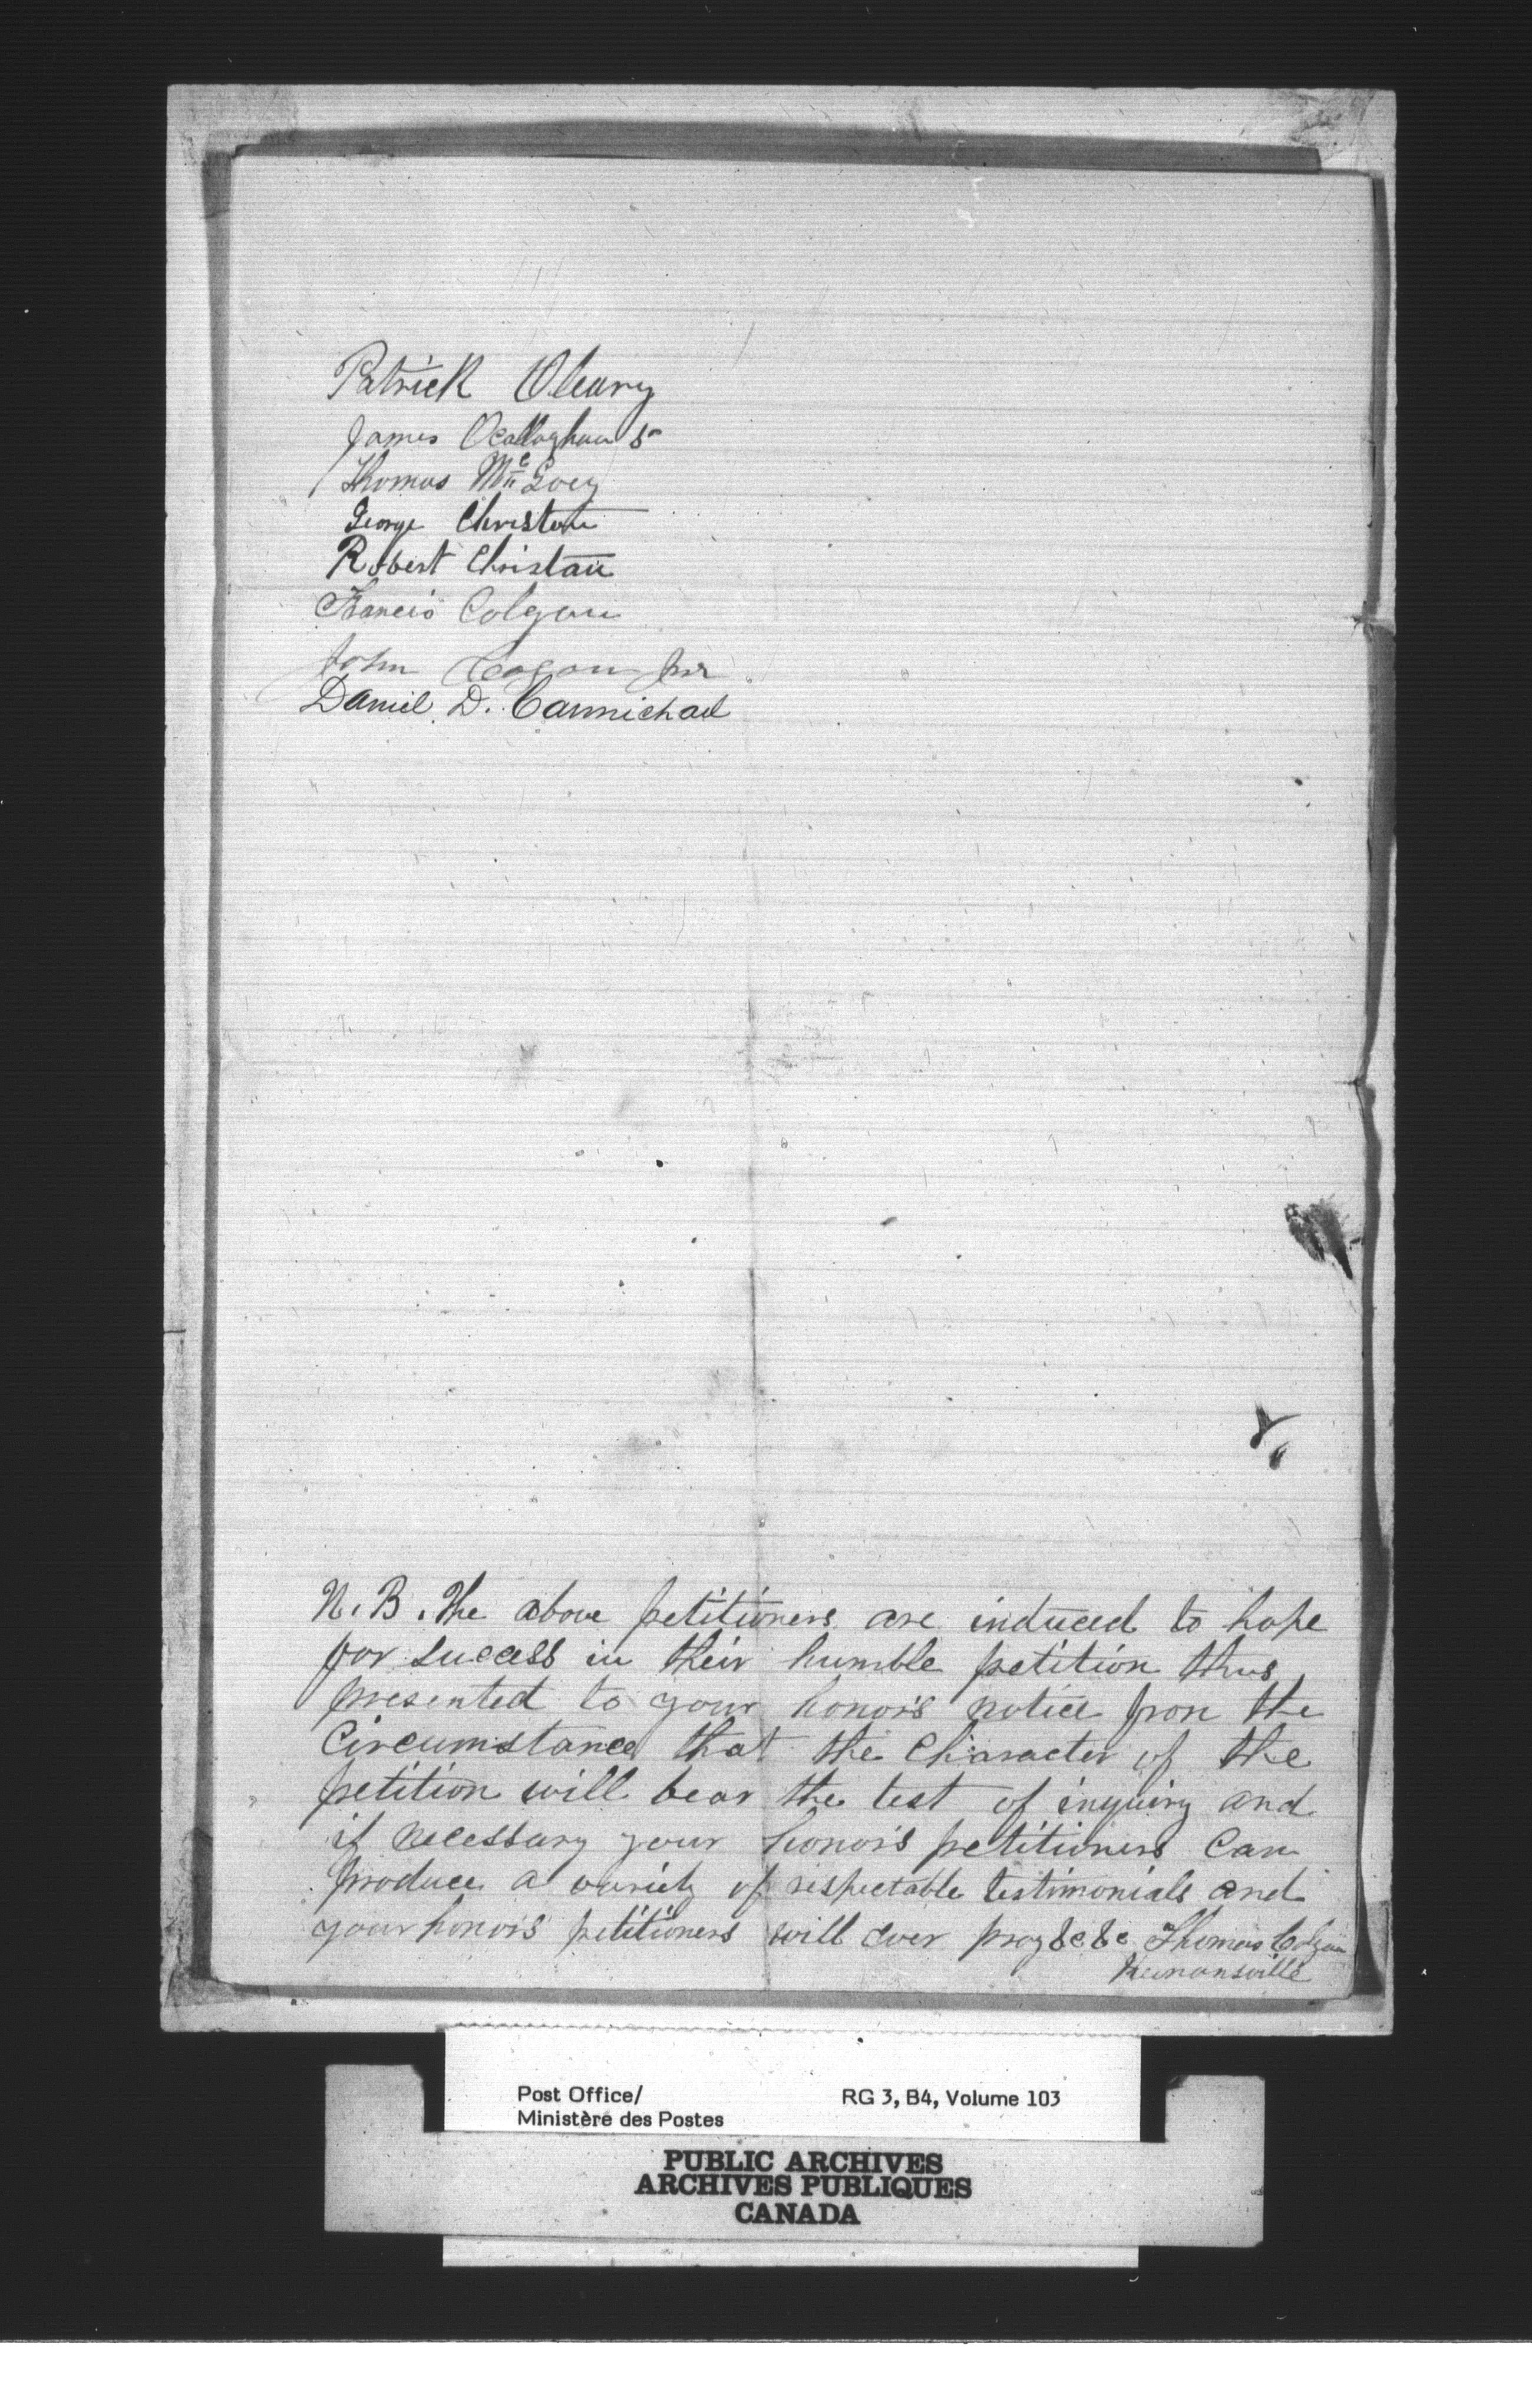 Patrick Oleary
James Ocallaghan Sr
Thomas Mc Goey
George Christain
Robert Christain
Francis Colgan
John Cogan Jnr
Daniel D. Carmichael
N. B. The above petitioners are induced to hope
for success in their humble petition thus
presented to your honors notice from the
Circumstance that the Character of the
petition will bear the test of inquiry and
if necessary your honor's petitioners Can
produce a variety of respectable testimonials and
your honors petitioners will ever pray &c &c Thomas Colgan
Post Office/
Ministère des Postes
RG 3, B4, Volume 103
PUBLIC ARCHIVES
ARCHIVES PUBLIQUES
CANADA